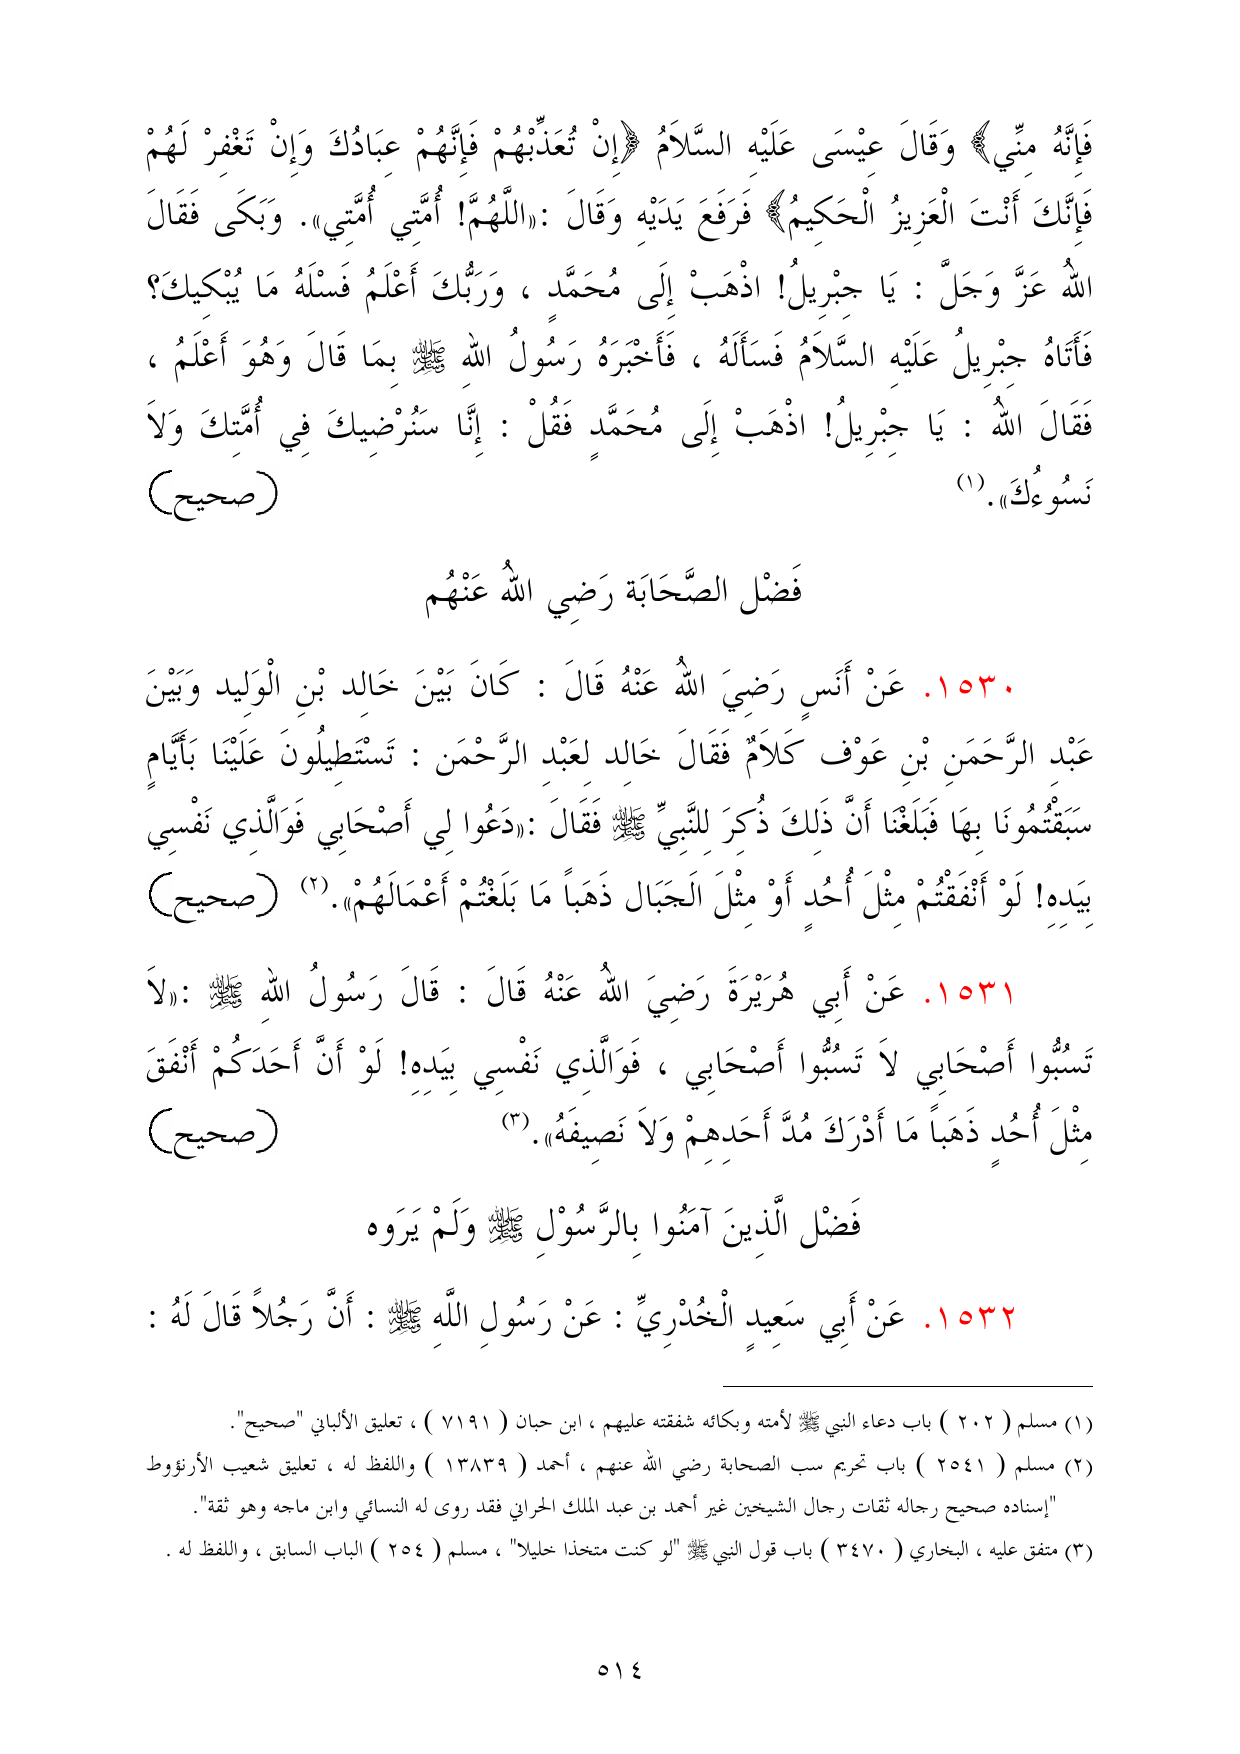 فَإِنَّهُ مِنِّي﴾ وَقَالَ عِيْسَى عَلَيْهِ السَّلاَمُ ﴿إِنْ تُعَذِّبْهُمْ فَإِنَّهُمْ عِبَادُكَ وَإِنْ تَغْفِرْ لَهُمْ
فَإِنَّكَ أَنْتَ الْعَزِيزُ الْحَكِيمُ﴾ فَرَفَعَ يَدَيْهِ وَقَالَ :«اللَّهُمَّ! أُمَّتِي أُمَّتِي». وَبَكَى فَقَالَ
اللهُ عَزَّ وَجَلَّ : يَا جِبْرِيلُ! اذْهَبْ إِلَى مُحَمَّدٍ ، وَرَبُّكَ أَعْلَمُ فَسْلَهُ مَا يُبْكِيكَ؟
فَأَتَاهُ جِبْرِيلُ عَلَيْهِ السَّلاَمُ فَسَأَلَهُ ، فَأَخْبَرَهُ رَسُولُ اللهِ ﷺ بِمَا قَالَ وَهُوَ أَعْلَمُ ،
فَقَالَ اللهُ : يَا جِبْرِيلُ! اذْهَبْ إِلَى مُحَمَّدٍ فَقُلْ : إِنَّا سَنُرْضِيكَ فِي أُمَّتِكَ وَلاَ
نَسُوءُكَ».(١) (صحيح)
فَضْل الصَّحَابَة رَضِي اللهُ عَنْهُم
١٥٣٠. عَنْ أَنَسٍ رَضِيَ اللهُ عَنْهُ قَالَ : كَانَ بَيْنَ خَالِد بْنِ الْوَلِيد وَبَيْنَ
عَبْدِ الرَّحَمَنِ بْنِ عَوْف كَلاَمٌ فَقَالَ خَالِد لِعَبْدِ الرَّحْمَن : تَسْتَطِيلُونَ عَلَيْنَا بَأَيَّامٍ
سَبَقْتُمُونَا بِهَا فَبَلَغْنَا أَنَّ ذَلِكَ ذُكِرَ لِلنَّبِيِّ ﷺ فَقَالَ :«دَعُوا لِي أَصْحَابِي فَوَالَّذِي نَفْسِي
بِيَدِهِ! لَوْ أَنْفَقْتُمْ مِثْلَ أُحُدٍ أَوْ مِثْلَ الَجَبَال ذَهَباً مَا بَلَغْتُمْ أَعْمَالَهُمْ».(٢) (صحيح)
١٥٣١. عَنْ أَبِي هُرَيْرَةَ رَضِيَ اللهُ عَنْهُ قَالَ : قَالَ رَسُولُ اللهِ ﷺ :«لاَ
تَسُبُّوا أَصْحَابِي لاَ تَسُبُّوا أَصْحَابِي ، فَوَالَّذِي نَفْسِي بِيَدِهِ! لَوْ أَنَّ أَحَدَكُمْ أَنْفَقَ
مِثْلَ أُحُدٍ ذَهَباً مَا أَدْرَكَ مُدَّ أَحَدِهِمْ وَلاَ نَصِيفَهُ».(٣) (صحيح)
فَضْل الَّذِينَ آمَنُوا بِالرَّسُوْلِ ﷺ وَلَمْ يَرَوه
١٥٣٢. عَنْ أَبِي سَعِيدٍ الْخُدْرِيِّ : عَنْ رَسُولِ اللَّهِ ﷺ : أَنَّ رَجُلاً قَالَ لَهُ :
(١) مسلم ( ٢٠٢ ) باب دعاء النبي ﷺ لأمته وبكائه شفقته عليهم ، ابن حبان ( ٧١٩١ ) ، تعليق الألباني "صحيح".
(٢) مسلم ( ٢٥٤١ ) باب تحريم سب الصحابة رضي الله عنهم ، أحمد ( ١٣٨٣٩ ) واللفظ له ، تعليق شعيب الأرنؤوط
"إسناده صحيح رجاله ثقات رجال الشيخين غير أحمد بن عبد الملك الحراني فقد روى له النسائي وابن ماجه وهو ثقة".
(٣) متفق عليه ، البخاري ( ٣٤٧٠ ) باب قول النبي ﷺ "لو كنت متخذا خليلا" ، مسلم ( ٢٥٤ ) الباب السابق ، واللفظ له .
٥١٤